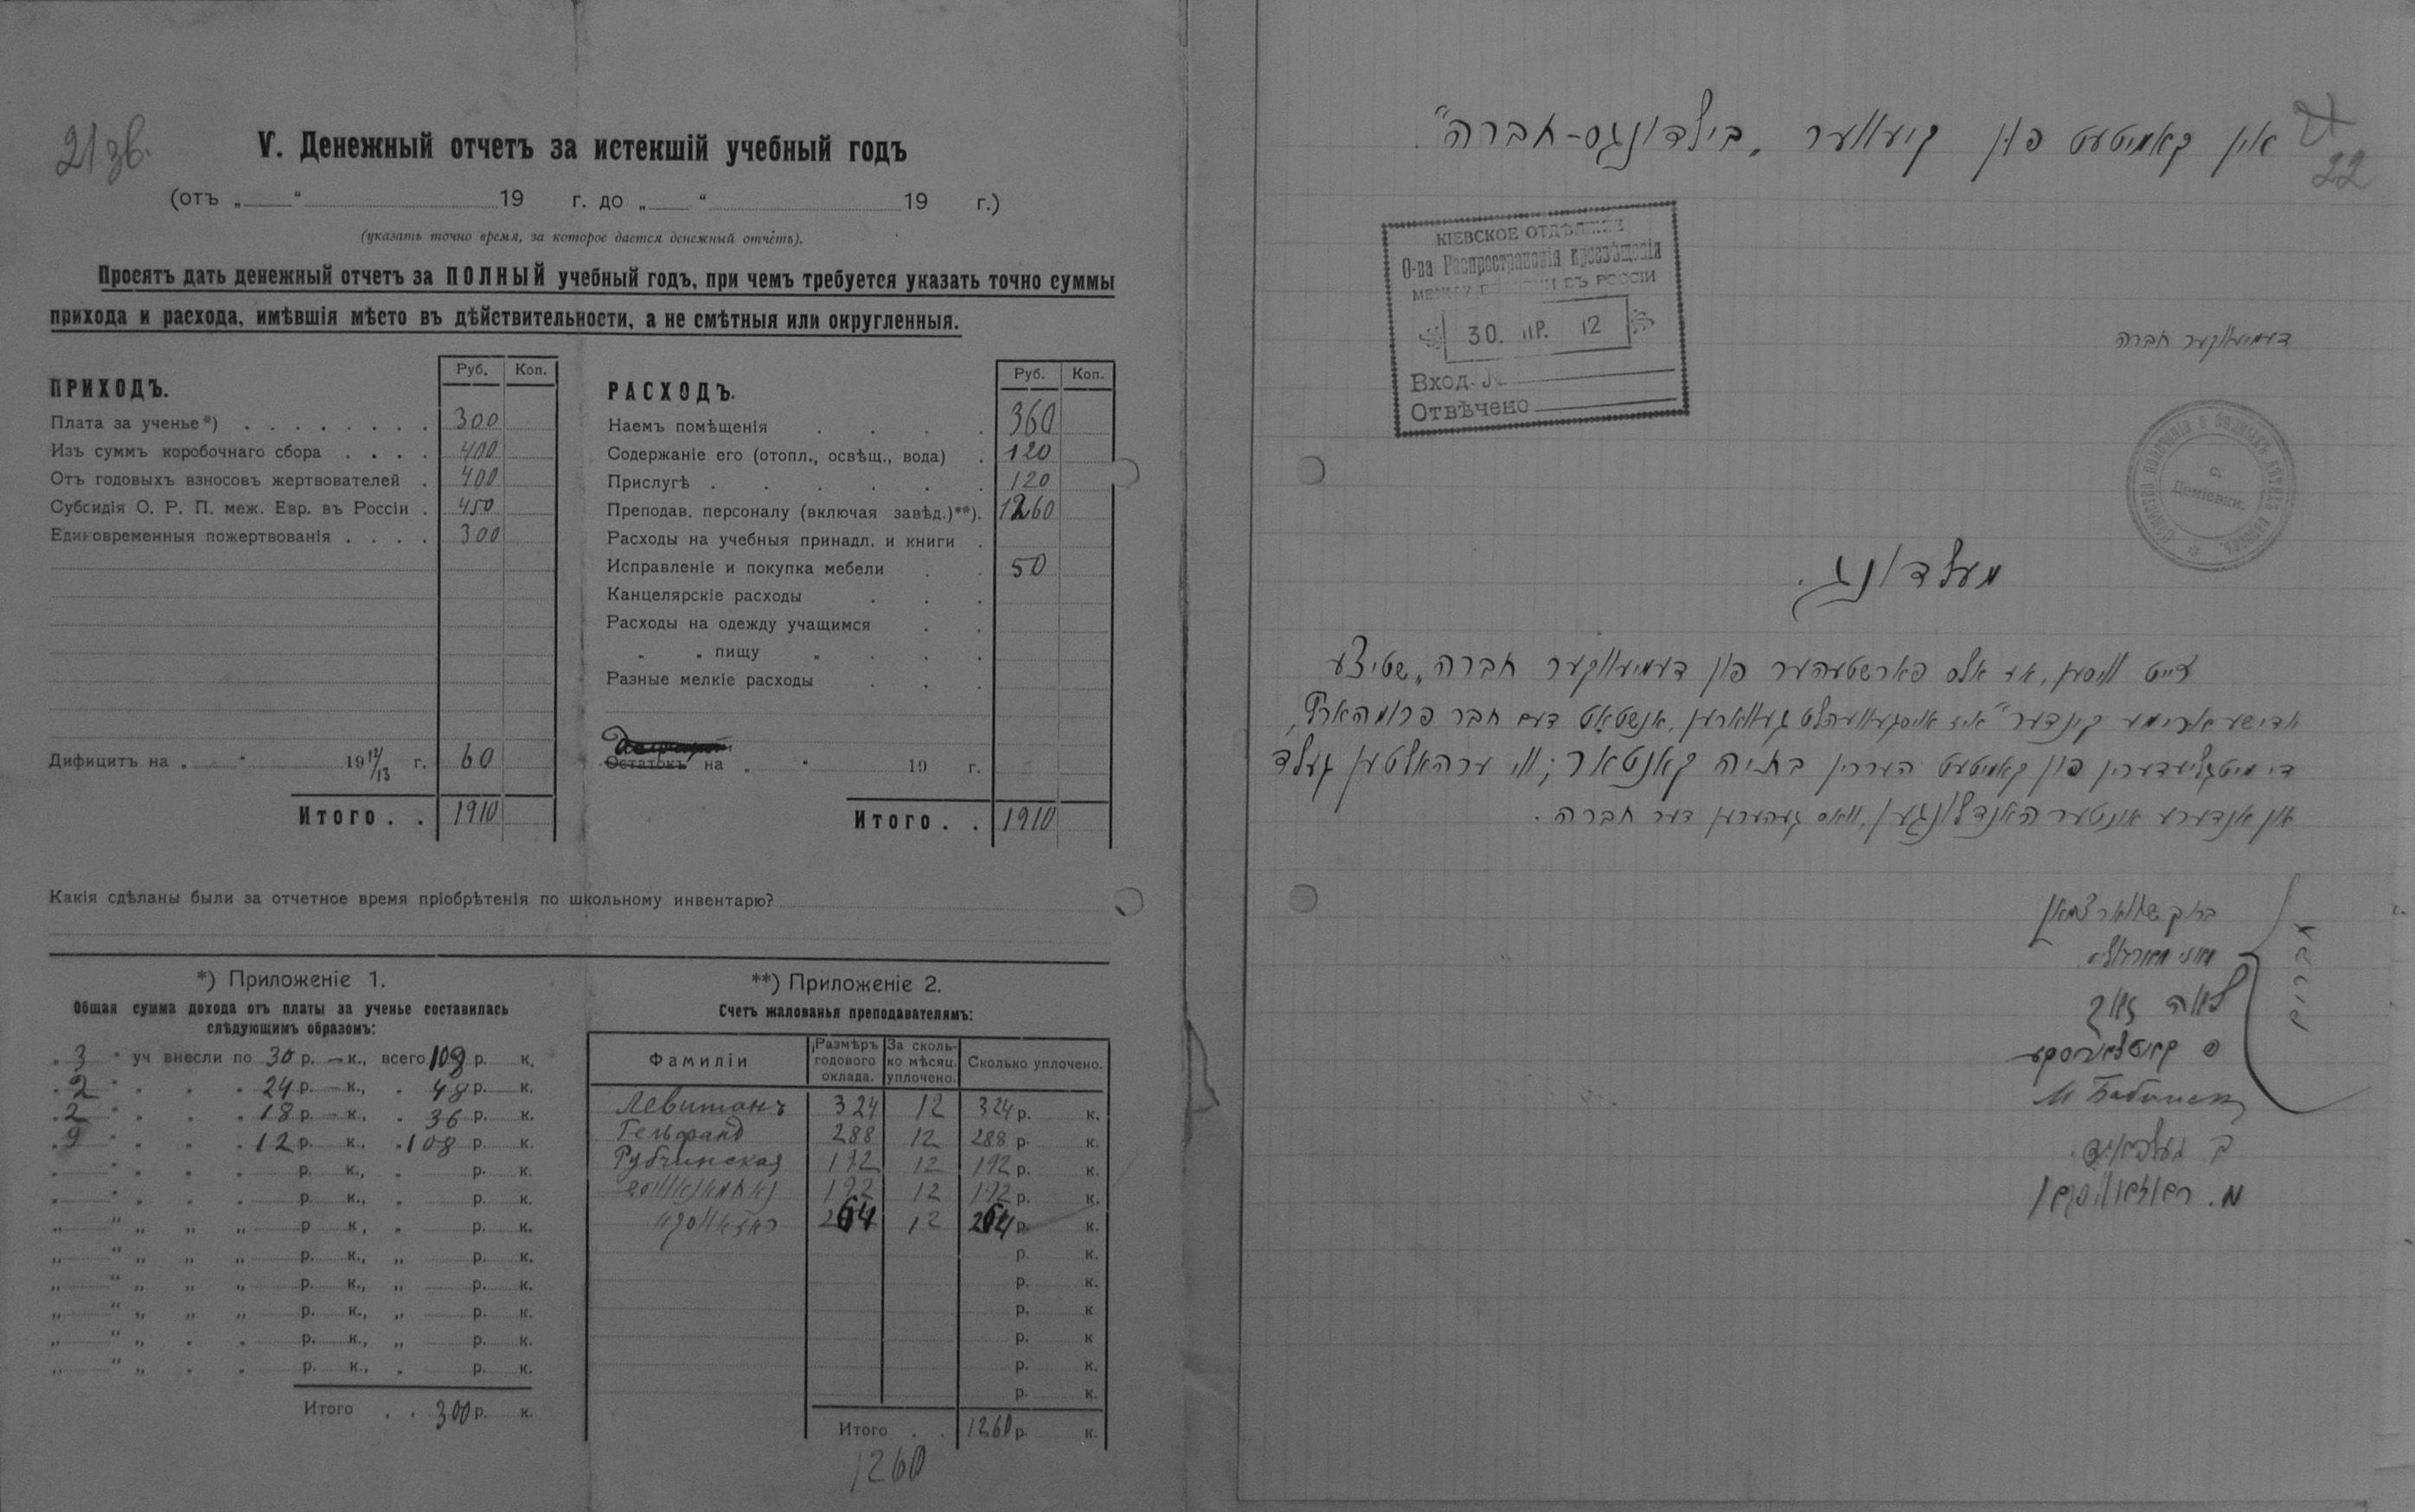 21 зв.
V. Денежный отчетъ за истекшій учебный годъ
(отъ „ “ 19 г. до „ “ 19 г.)
(указать точно время, за которое дается денежный отчетъ).
Просятъ дать денежный отчетъ за ПОЛНЫЙ учебный годъ, при чемъ требуется указать точно суммы
прихода и расхода, имѣвшія мѣсто въ дѣйствительности, а не смѣтныя или округленныя.
ПРИХОДЪ. Руб. Коп.
Плата за ученье*) 300
Изъ суммъ коробочнаго сбора 400
Отъ годовыхъ взносовъ жертвователей 400
Субсидія О. Р. П. меж. Евр. въ Россіи 450
Единовременныя пожертвованія 300
Дифицитъ на „ “ 1912/13 г. 60
Итого . . 1910
РАСХОДЪ. Руб. Коп.
Наемъ помѣщенія 360
Содержаніе его (отопл., освѣщ., вода) 120
Прислугѣ 120
Преподав. персоналу (включая завѣд.)**). 1260
Расходы на учебныя принадл. и книги
Исправленіе и покупка мебели 50
Канцелярскіе расходы
Расходы на одежду учащимся
„ „ пищу „
Разные мелкіе расходы
Остатокъ на „ “ 19 г.
Итого . . 1910
Какія сдѣланы были за отчетное время пріобрѣтенія по школьному инвентарю?
*) Приложеніе 1.
Общая сумма дохода отъ платы за ученье составилась
слѣдующимъ образомъ:
„ 3 “ уч внесли по 30 р. – к., всего 108 р. к.
„ 2 “ „ „ „ 24 р. – к., „ 48 р. к.
„ 2 “ „ „ „ 18 р. – к., „ 36 р. к.
„ 9 “ „ „ „ 12 р. к., „ 108 р. к.
„ “ „ „ „ р. к., „ р. к.
„ “ „ „ „ р. к., „ р. к.
„ “ „ „ „ р. к., „ р. к.
„ “ „ „ „ р. к., „ р. к.
„ “ „ „ „ р. к., „ р. к.
„ “ „ „ „ р. к., „ р. к.
„ “ „ „ „ р. к., „ р. к.
„ “ „ „ „ р. к., „ р. к.
Итого . . 300 р. к.
**) Приложеніе 2.
Счетъ жалованья преподавателямъ:
Фамиліи Размѣръ годового оклада. За сколько мѣсяц. уплочено. Сколько уплочено.
Левитанъ 324 12 324 р. к.
Гельфанд 288 12 288 р. к.
Рубчинская 192 12 192 р. к.
192 12 192 р. к.
264 12 264 р. к.
р. к.
р. к.
р. к.
р. к.
р. к.
р. к.
Итого . . 1260 р. к.
1260
22
אין קאמיטעט פון קיעווער „בילדונגס-חברה“
КІЕВСКОЕ ОТДѢЛЕНІЕ
О-ва Распространенія просвѣщенія
МЕЖДУ ЕВРЕЯМИ ВЪ РОССІИ
30. АПР. 12
Вход. №
Отвѣчено
דעמיעווקער חברה
с. Деміевки.
מעלדונג.
זייט וויסען, אז אלס פארשטעהער פון דעמיעווקער חברה „שטיצע
אידישע ארימע קינדער“ איז אויסגעוועהלט געווארען, אנשטאט דעם חבר
די מיטגליעדערין פון קאמיטעט הערין בתיה קאנטאר; ווי ערהאלטען געלד
און אנדערע אונטערהאנדלונגען, וואס געהערען דער חברה.
חברים
ברוך שווארצמאן
לאה זאק
ב געלפאנד.